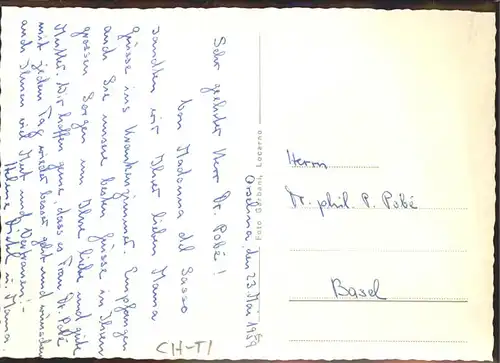 Orselina, den 23. Mai 1959
Sehr geehrter Herr Dr. Pobé!
Von Madonna del Sasso
sandten wir Ihrer lieben Mama
Grüsse ins Krankenzimmer. Empfangen
auch Sie unsere besten Grüsse in Ihren
grossen Sorgen um Ihre liebe und gute
Mutter. Wir hoffen gerne, dass es Frau Dr. Pobé
mit jedem Tag wieder besser geht und wünschen
auch Ihnen viel Mut und Vertrauen!
Helene u. Mama
Foto Garbani, Locarno
Herrn
Dr. phil. P. Pobé
Basel
CH-TI